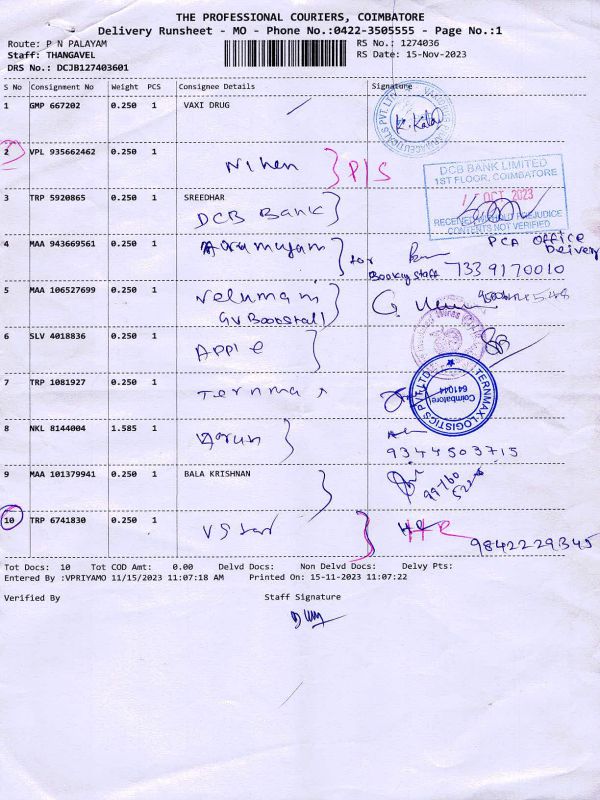 THE PROFESSIONAL COURIERS, COIMBATORE
Delivery Runsheet - MO - Phone No.:0422-3505555 - Page No.:1
Route: P N PALAYAM RS No.: 1274036
Staff: THANGAVEL RS Date: 15-Nov-2023
DRS No.: DCJB127403601
S No Consignment No Weight PCS Consignee Details Signature
1 GMP 667202 0.250 1 VAXI DRUG
K. Kala
2 VPL 935662462 0.250 1
Nithen P/S
DCB BANK LIMITED
1ST FLOOR, COIMBATORE
OCT 2023
RECEIVED WITHOUT PREJUDICE
CONTENTS NOT VERIFIED
3 TRP 5920865 0.250 1 SREEDHAR
DCB Bank
4 MAA 943669561 0.250 1 Arumugam for
PCA OFFICE
Delivery
Booking staff 7339170010
5 MAA 106527699 0.250 1
Velumani
GV Bookstall
6 SLV 4018836 0.250 1
Apple
7 TRP 1081927 0.250 1
Ternmax
TERNMAX LOGISTICS PVT. LTD.
Coimbatore
641044
8 NKL 8144004 1.585 1
Varun
9344503715
9 MAA 101379941 0.250 1 BALA KRISHNAN
10 TRP 6741830 0.250 1
HR
9842229345
Tot Docs: 10 Tot COD Amt: 0.00 Delvd Docs: Non Delvd Docs: Delvy Pts:
Entered By :VPRIYAMO 11/15/2023 11:07:18 AM Printed On: 15-11-2023 11:07:22
Verified By Staff Signature